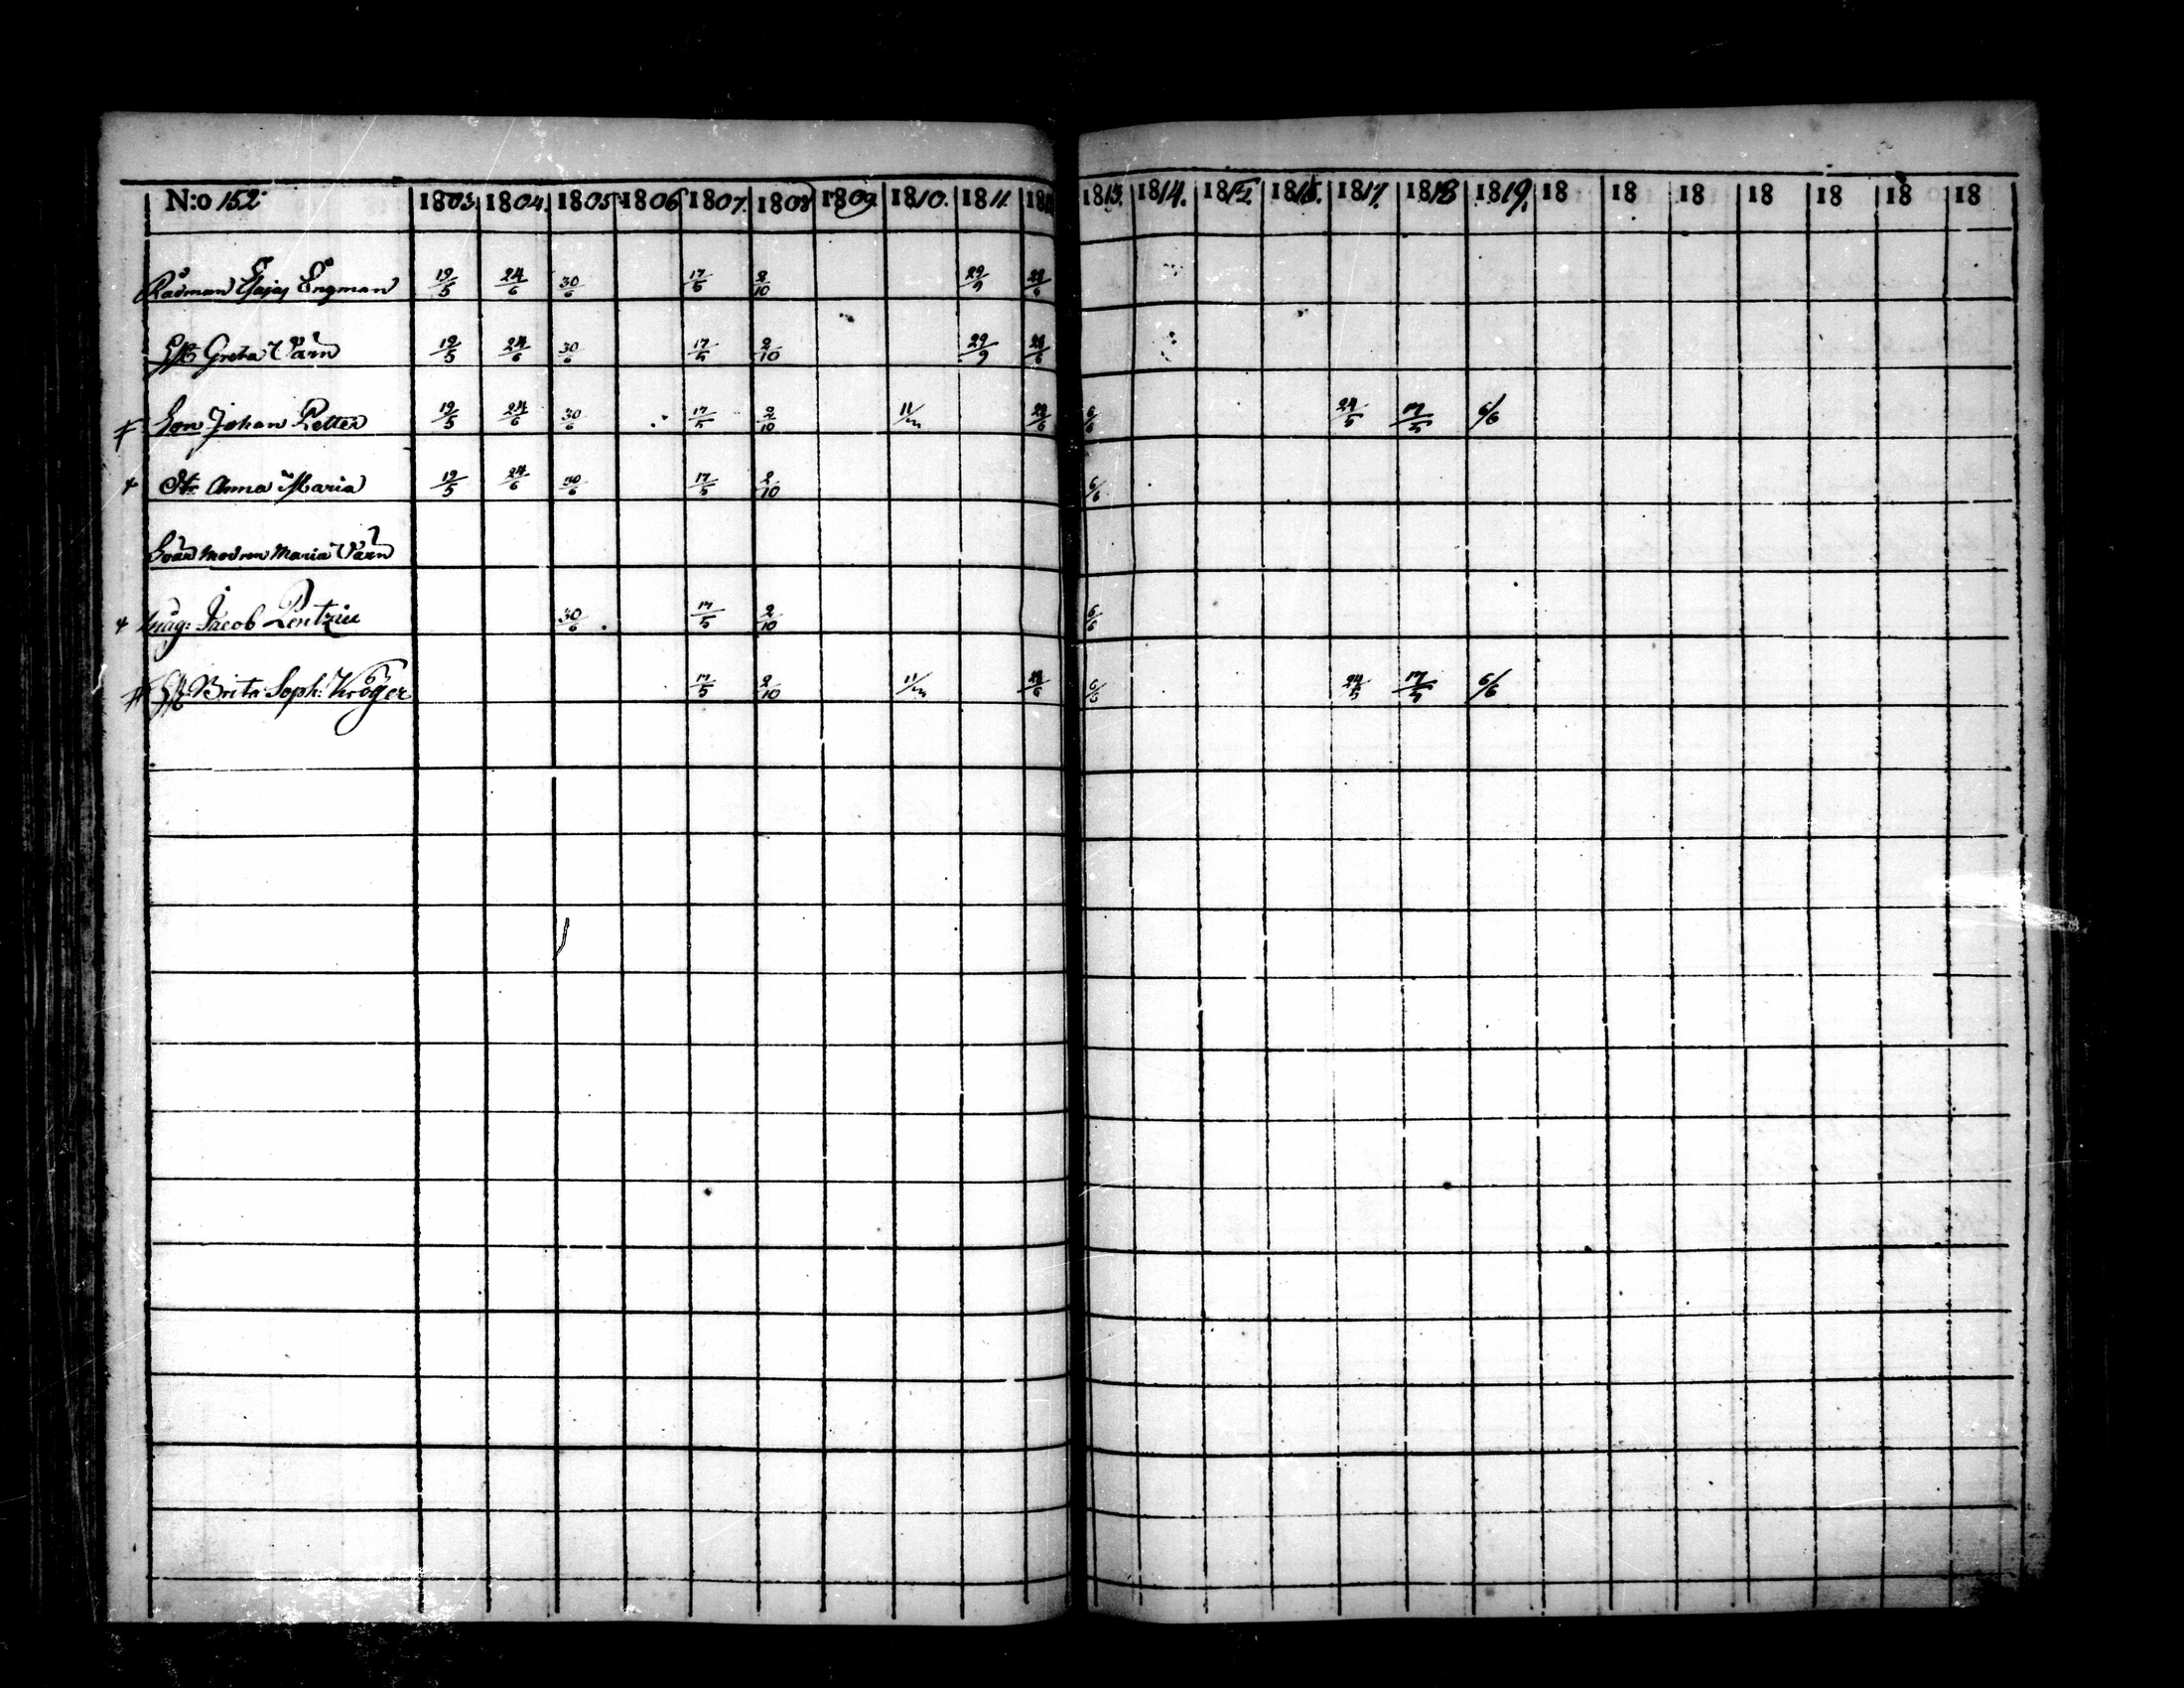 N:o 152 1803. 1804. 1805. 1806 1807. 1808 1809. 1810. 1811. 18 1813. 1814. 1815. 1816. 1817. 1818 1819. 18 18 18 18 18 18 18
Rådman Esajas Engman 19/5 24/6 30/6 17/5 2/10 29/9 28/6
H Greta Värn 19/5 24/6 30/6 17/5 2/10 29/9 28/6
Son Johan Petter 19/5 24/6 30/6 17/5 2/10 11/ 28/6 6/6 24/5 17/5 6/6
Dr Anna Maria 19/5 24/6 30/6 17/5 2/10 6/6
Svär modren Maria Värn
Mag: Jacob 30/6 17/5 2/10 6/6
H Brita Soph: Kröger 17/5 2/10 11/ 28/6 6/6 24/5 17/5 6/6